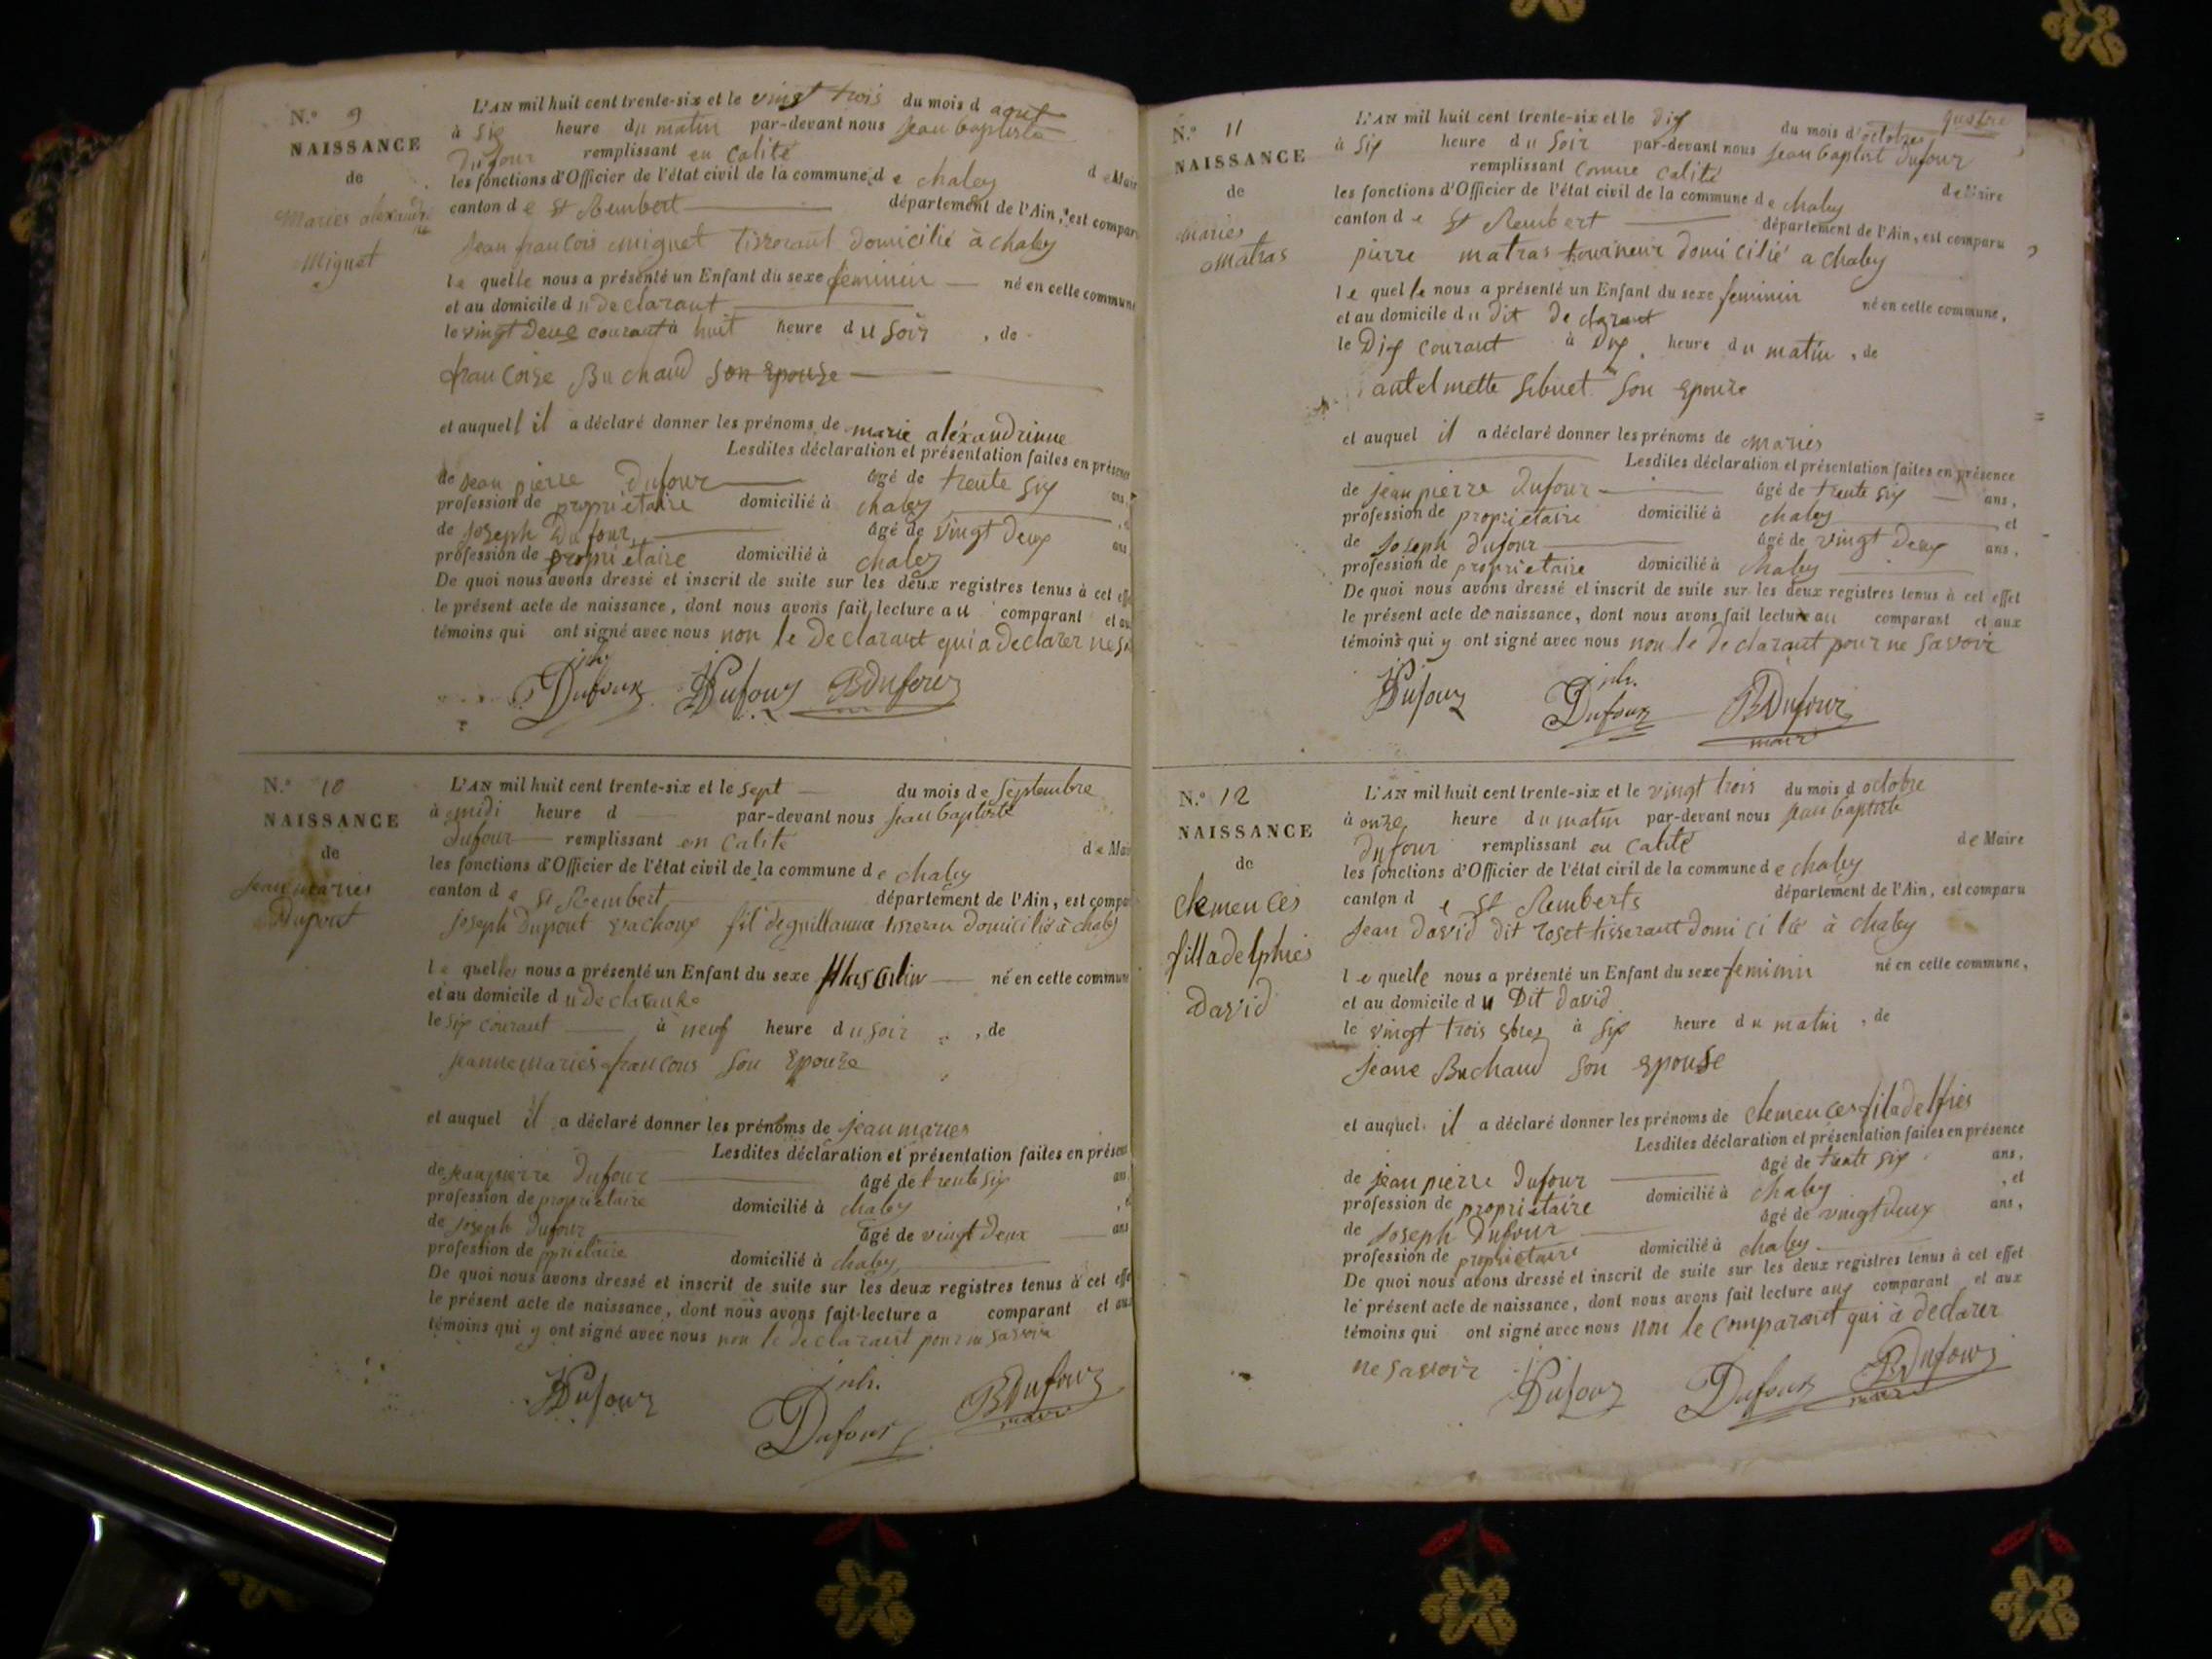 N.° 9
NAISSANCE
de
Maries alexandri
Miguet
L'AN mil huit cent trente-six et le vingt trois du mois d aout
à six heure du matin par-devant nous jean baptiste
Dufour remplissant en Calité de Mair
les fonctions d'Officier de l'état civil de la commune de chaley
canton de St Rembert département de l'Ain, est compar
jean francois miguet tisserant domicilié à chaley
le quelle nous a présenté un Enfant du sexe feminin né en cette commune
et au domicile du declarant
le vingt deux courant à huit heure du soir, de
francoise Buchaud son epouse
et auquel il a déclaré donner les prénoms de marie aléxandrinne
Lesdites déclaration et présentation faites en présence
de jean pierre Dufour âgé de trente six ans,
profession de propriétaire domicilié à chaley
de joseph Dufour âgé de vingt deux ans
profession de propriétaire domicilié à chaley
De quoi nous avons dressé et inscrit de suite sur les deux registres tenus à cet effe
le présent acte de naissance, dont nous avons fait lecture au comparant et au
témoins qui ont signé avec nous non le declarant qui a declarer ne sa
jph.
Dufour JPDufour BDufour
N.° 10
NAISSANCE
de
jean maries
Dupont
L'AN mil huit cent trente-six et le sept du mois de septembre
à midi heure d par-devant nous jean baptiste
Dufour remplissant en Calité de Mai
les fonctions d'Officier de l'état civil de la commune de chaley
canton de St Rembert département de l'Ain, est compa
joseph Dupont vachoux fil de guillaume tisseran domicilié à chaley
le quelle nous a présenté un Enfant du sexe Masculin né en cette commune
et au domicile du declarant
le six courant à neuf heure du soir, de
jeanne maries francons son epouse
et auquel il a déclaré donner les prénoms de jean maries
Lesdites déclaration et présentation faites en présen
de jean pierre Dufour âgé de trente six ans
profession de propriétaire domicilié à chaley
de joseph Dufour âgé de vingt deux ans
profession de domicilié à chaley
De quoi nous avons dressé et inscrit de suite sur les deux registres tenus à cet effe
le présent acte de naissance, dont nous avons fait lecture a comparant et aux
témoins qui y ont signé avec nous non le declarant pour ne savoir
JPDufour jph. Dufour BDufour
maire
quatre
N.° 11
NAISSANCE
de
maries
Matras
L'AN mil huit cent trente-six et le dix du mois d'octobre
à six heure du soir par-devant nous jean baptist Dufour
remplissant comme calité de Maire
les fonctions d'Officier de l'état civil de la commune de chaley
canton de St Rembert département de l'Ain, est comparu
pierre matras tourneur domicilié a chaley
le quelle nous a présenté un Enfant du sexe feminin né en cette commune,
et au domicile du dit declarant
le Dix courant à Dix heure du matin, de
antelmette sibuet son epouse
et auquel il a déclaré donner les prénoms de maries
Lesdites déclaration et présentation faites en présence
de jean pierre Dufour âgé de trente six ans,
profession de propriétaire domicilié à chaley et
de joseph Dufour âgé de vingt deux ans,
profession de propriétaire domicilié à chaley
De quoi nous avons dressé et inscrit de suite sur les deux registres tenus à cet effet
le présent acte de naissance, dont nous avons fait lecture au comparant et aux
témoins qui y ont signé avec nous non le declarant pour ne savoir
JPDufour jph. Dufour BDufour
maire
N.° 12
NAISSANCE
de
clemences
filladelphies
David
L'AN mil huit cent trente-six et le vingt trois du mois d octobre
à onze heure du matin par-devant nous jean baptiste
Dufour remplissant en calité de Maire
les fonctions d'Officier de l'état civil de la commune de chaley
canton de St Remberts département de l'Ain, est comparu
jean David dit roset tisserant domicilié à chaley
le quelle nous a présenté un Enfant du sexe feminin né en cette commune,
et au domicile du Dit David
le vingt trois à six heure du matin, de
jeane Buchaud son epouse
et auquel il a déclaré donner les prénoms de clemences filadelfies
Lesdites déclaration et présentation faites en présence
de jean pierre Dufour âgé de trente six ans,
profession de propriétaire domicilié à chaley, et
de joseph Dufour âgé de vingt deux ans,
profession de propriétaire domicilié à chaley
De quoi nous avons dressé et inscrit de suite sur les deux registres tenus à cet effet
le présent acte de naissance, dont nous avons fait lecture aux comparant et aux
témoins qui ont signé avec nous non le comparant qui à declarer
ne savoir
JPDufour Dufour BDufour
maire